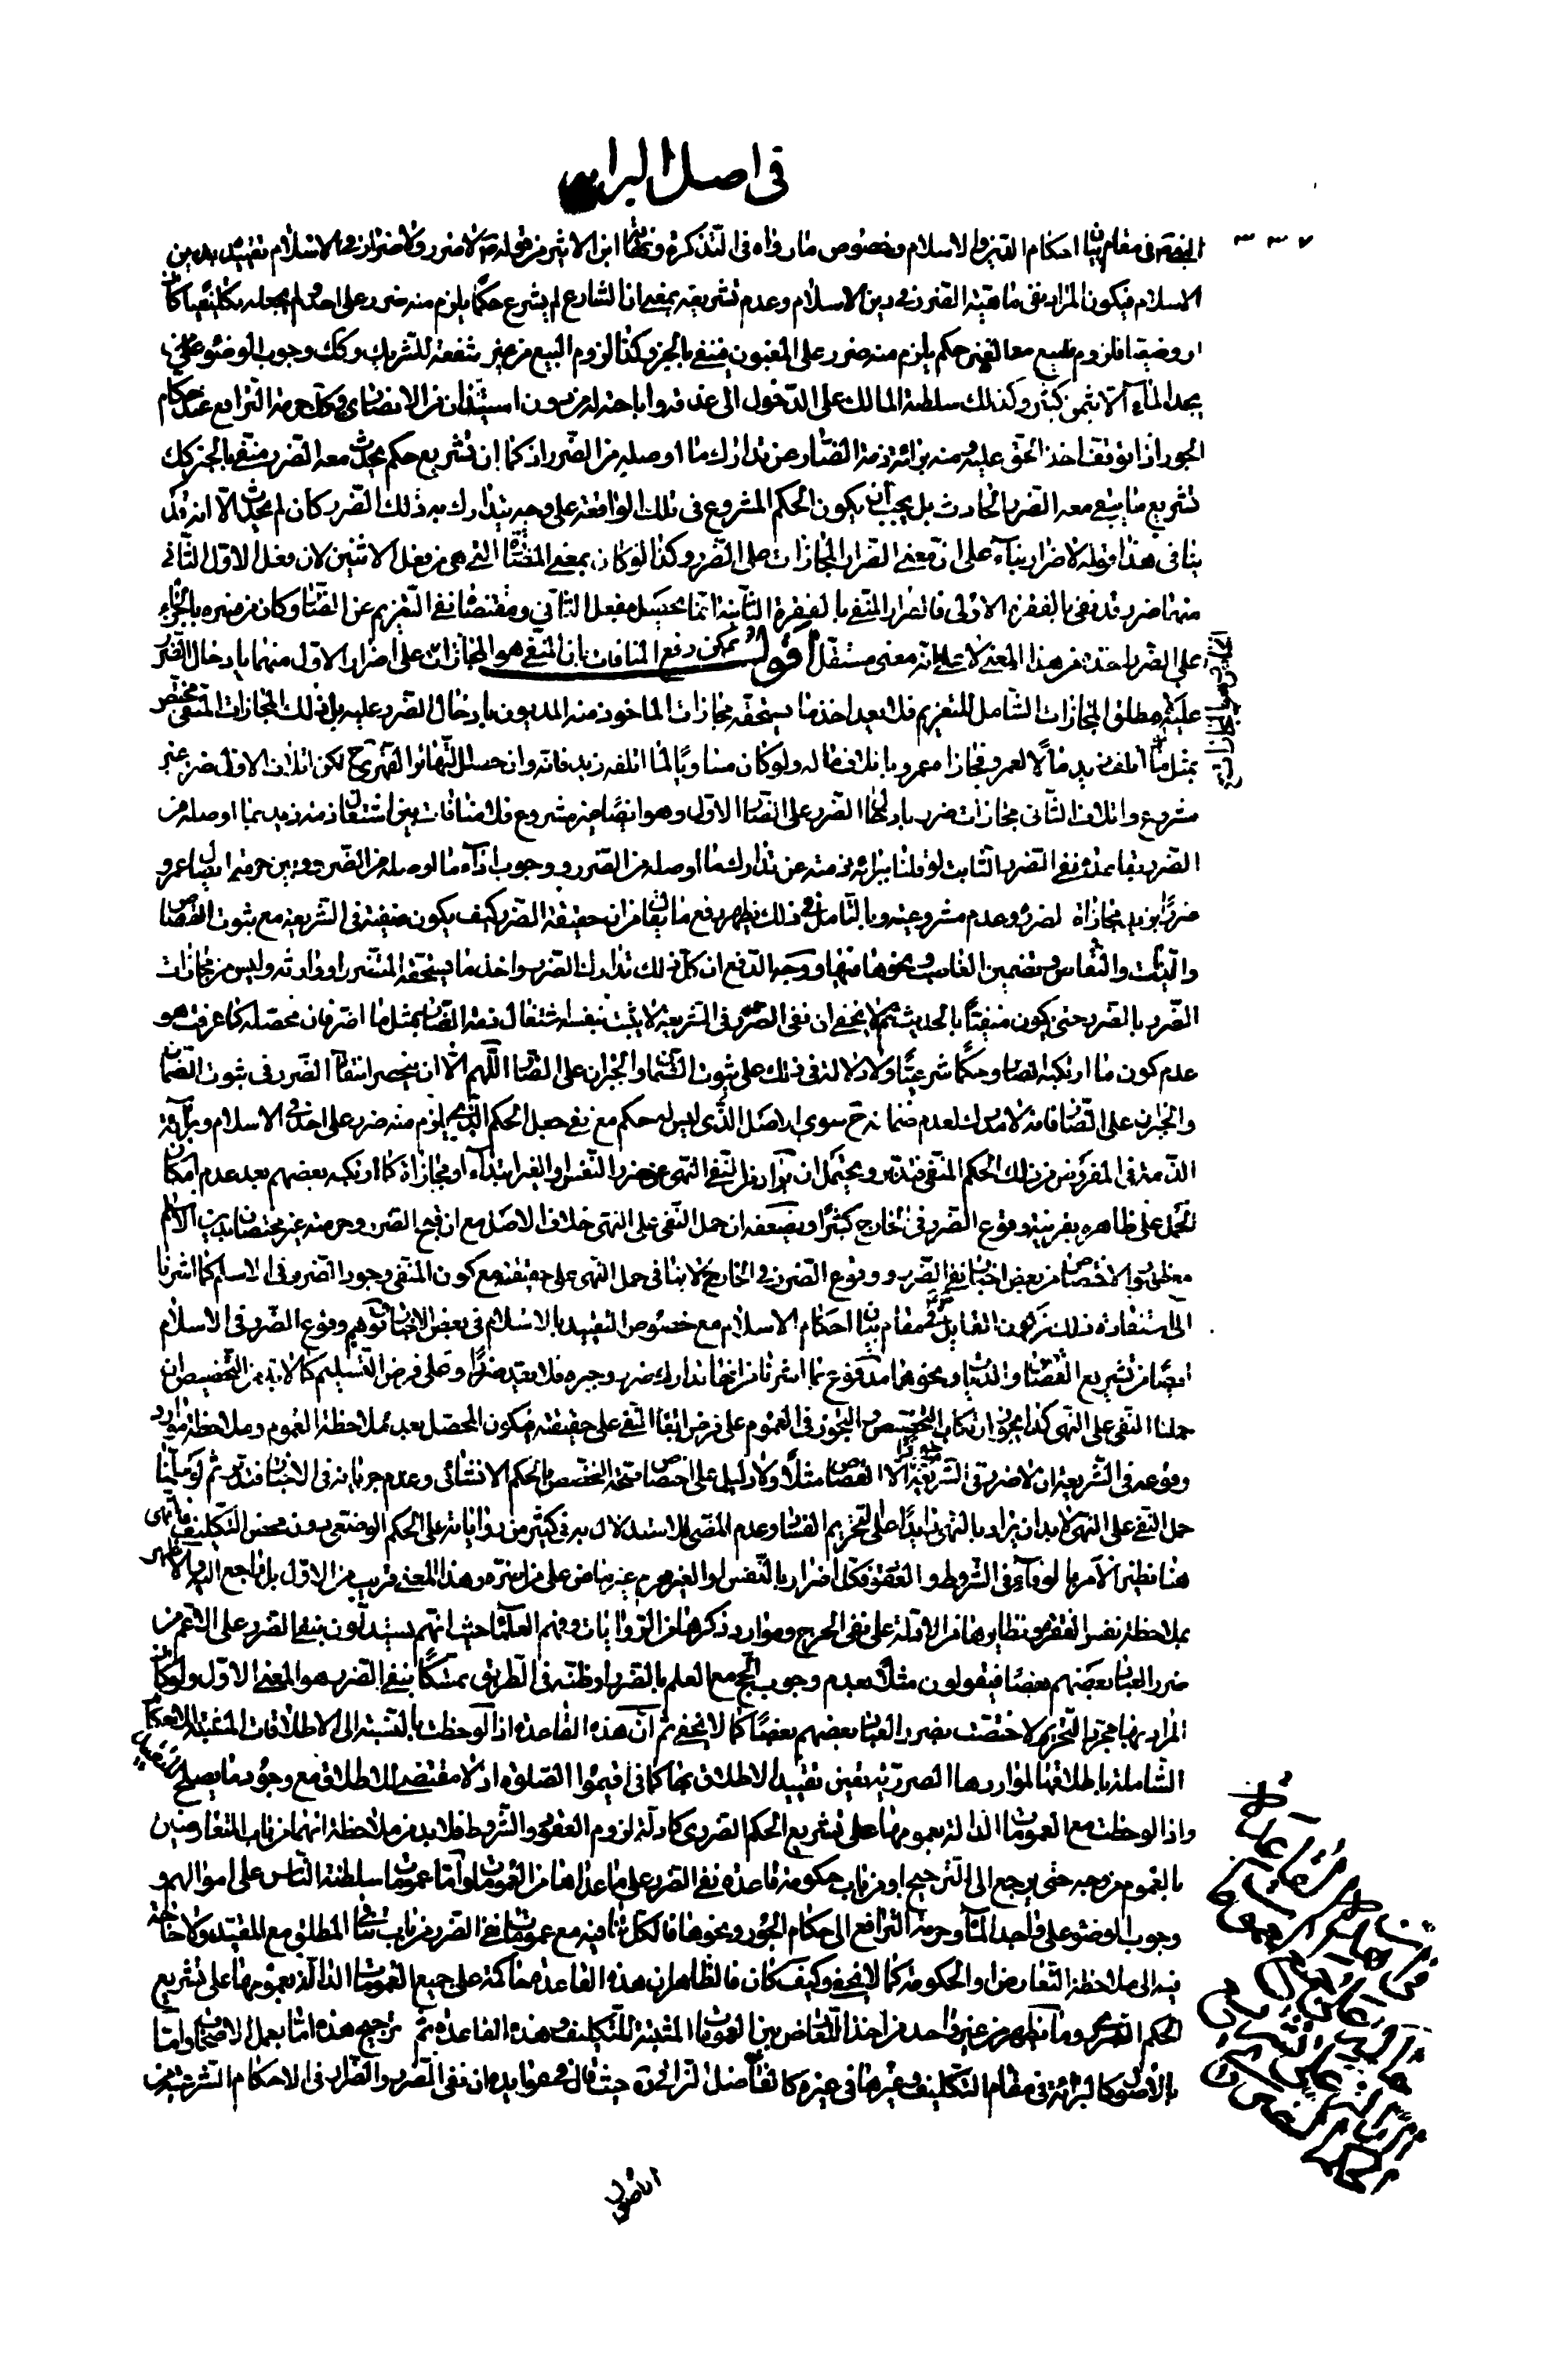 في اصل البرائة
٣٣٧
في مقام بيان احكام الاسلام وخصوص ما رواه في التذكرة ونهاية ابن الاثير من قوله ص لا ضرر ولا ضرار في الاسلام بتقييده بدين
الاسلام فيكون المراد نفي ماهية الضرر في دين الاسلام وعدم تشريعه بمعنى ان الشارع لم يشرع حكما يلزم منه ضرر على احد ولم يجعله تكليفيا كان
او وضعيا فلزوم البيع مع الغبن حكم يلزم منه ضرر على المغبون فينفى بالخبر وكذا لزوم البيع من غير شفعة للشريك وكك وجوب الوضوء على من
يجد الماء الا بثمن كثير وكذلك سلطنة المالك على الدخول الى عذقه واباحته له من دون استيذان من الانصاري وكك حرمة الترافع عند حكام
الجور اذا توقف اخذ الحق عليه ومنه برائة ذمة الضار عن تدارك ما اوصله من الضرر اذ كما ان تشريع حكم يحدث معه الضرر منفي بالخبر كك
تشريع ما يبقى معه الضرر الحادث بل يجب ان يكون الحكم المشروع في تلك الواقعة على وجه يتدارك به ذلك الضرر كان لم يحدث الا انه قد
ينافي هذا قوله لا ضرار بناء على ان معنى الضرار المجازات على الضرر وكذا لو كان بمعنى المضارة التي هي من فعل الاثنين لان فعل الاول الثاني
منهما ضرر قد نفى بالفقرة الاولى فالضرار المنفي بالفقرة الثانية انما يحصل بفعل الثاني ومقتضا نفى التغريم عن الضار وكان من فسره بالجزاء
على الضرر اخذه من هذا المعنى لا على انه معنى مستقل اقول ويمكن رفع المنافات بان المنفي هو المجازات على اضرار الاول منهما بادخال الضرر
عليه لا مطلق المجازات الشامل للتغريم فلا يعد اخذ ما يستحقه مجازات الماخوذ منه المديون بادخال الضرر عليه بل ذلك المجازات المنفي مختص
بمثل ما اتلف زيد مالا لعمرو فجازا عمرو باتلاف ماله ولو كان مساويا لما اتلفه زيد فانه وان حصل التهاتر القهري ح لكن اتلاف الاول ضرر غير
مشروع واتلاف الثاني مجازات ضرر بادخال الضرر على الضار الاول وهو ايضا غير مشروع فلا منافات بين اشتغال ذمة زيد بما اوصله من
الضرر بقاعدة نفي الضرر الثابت لو قلنا ببرائة ذمته عن تدارك ما اوصله من الضرر ووجوب اداء ما اوصله من الضرر وبين حرمة ايصال عمرو
ضررا بزيد مجازاة لضرره وعدم مشروعيته وبالتامل في ذلك يظهر رفع ما يقال من ان حقيقة الضرر كيف يكون منفية في الشريعة مع ثبوت القصاص
والديات والتقاص وتضمين الغاصب ونحوها فيها ووجه الدفع ان كل ذلك تدارك الضرر واخذ ما يستحقه المتضرر او وارثه وليس من مجازات
الضرر بالضرر حتى يكون منفيا بالحديث ثم لا يخفى ان نفى الضرر في الشريعة لا يثبت بنفسه اشتغال ذمة الضار بمثل ما اضر فان محصله كما عرفت هو
عدم كون ما ارتكبه الضار حكما شرعيا ولا دلالة في ذلك على ثبوت الضمان والجبران على الضار اللهم الا ان ينحصر انتفاء الضرر في ثبوت الضمان
والجبران على الضار فانه لا مدرك لعدم ضمانه ح سوى الاصل الذي ليس له حكم مع نفى جعل الحكم الذي يلزم منه ضرر على احد في الاسلام وبرائة
الذمة في المفروض من ذلك الحكم المنفي فتدبر ويحتمل ان يراد من النفي النهي عن ضرر النفس او الغير ابتداء او مجازاة كما ارتكبه بعضهم بعد عدم امكان
الحمل على ظاهره بقرينة وقوع الضرر في الخارج كثيرا ويضعفه ان حمل النفي على النهي خلاف الاصل مع ان قبح الضرر وحرمته غير مختصان بدين الاسلام
الاختصاص من بعض اخبار نفي الضرر ووقوع الضرر في الخارج لا ينافي حمل النفي على حقيقته مع كون المنفي وجود الضرر في الاسلام كما اشرنا
الى استفادة ذلك من مقام بيان احكام الاسلام مع خصوص التقييد بالاسلام في بعض الاخبار وتوهم وقوع الضرر في الاسلام
ايضا من تشريع القصاص والديات ونحوهما مدفوع بما اشرنا من انها تدارك ضرر وجبره فلا يعد ضررا وعلى فرض التسليم كما لا بد من التخصيص ان
حملنا النفي على النهي كذا يجوز ارتكاب التخصيص والتجوز في العموم على فرض ابقاء النفي على حقيقته فيكون المحصل بعد ملاحظة العموم وملاحظة موارد
وقوعه في الشريعة ان لا ضرر في الشريعة الا القصاص مثلا ولا دليل على اختصاص صحة التخصيص بالحكم الانشائي وعدم جريانه في الاخبار فتدبر ثم لو سلمنا
حمل النفي على النهي لا بد ان يراد بالنهي زايدا على التحريم الفساد وعدم المضي للاستدلال به في كثير من رواياته على الحكم الوضعي دون محض التكليف فالنهي
هنا نظير الامر بالوفاء في الشروط والعقود فكل اضرار بالنفس او الغير محرم غير ماض على من اضره وهذا المعنى قريب من الاول بل راجع اليه والاظهر
بملاحظة نفس الفقرة ونظايرها من الادلة على نفي الحرج وموارد ذكرها من الروايات وفهم العلماء حيث انهم يستدلون بنفي الضرر على الاعم من
ضرر العباد بعضهم بعضا فيقولون مثلا بعدم وجوب الحج مع العلم بالضرر او ظنه في الطريق تمسكا بنفي الضرر هو المعنى الاول ولو كان
المراد بها مجرد التحريم لاختصت بضرر العباد بعضهم بعضا كما لا يخفى ثم ان هذه القاعدة اذا لوحظت بالنسبة الى الاطلاقات المثبتة للاحكام
الشاملة باطلاقها لمواردها الضررية يتعين تقييد الاطلاق بها كما في اقيموا الصلوة اذ لا مقتضى للاطلاق مع وجود ما يصلح للتقييد
واذا لوحظت مع العمومات الدالة بعمومها على تشريع الحكم الضرري كادلة لزوم العقود والشروط فلا بد من ملاحظة انهما من باب المتعارضين
بالعموم من وجه حتى يرجع الى الترجيح او من باب حكومة قاعدة نفي الضرر على ما عداها من العمومات واما عمومات سلطنة الناس على اموالهم و
وجوب الوضوء على واجد الماء وحرمة الترافع الى حكام الجور ونحوها فالكل تنافيه مع عمومات نفي الضرر من باب تنافي المطلق مع المقيد ولا حاجة
فيه الى ملاحظة التعارض او الحكومة كما لا يخفى وكيف كان فالظاهر ان هذه القاعدة حاكمة على جميع العمومات الدالة بعمومها على تشريع
الحكم الضرري وما يظهر من غير واحد من اخذ التعارض بين العمومات المثبتة للتكليف وهذه القاعدة ثم ترجيح هذه اما بعمل الاصحاب واما
بالاصول كالبرائة في مقام التكليف وغيرها في غيره كالفاضل النراقي ره حيث قال في عوايده ان نفى الضرر والضرار في الاحكام الشرعية من
الاصول